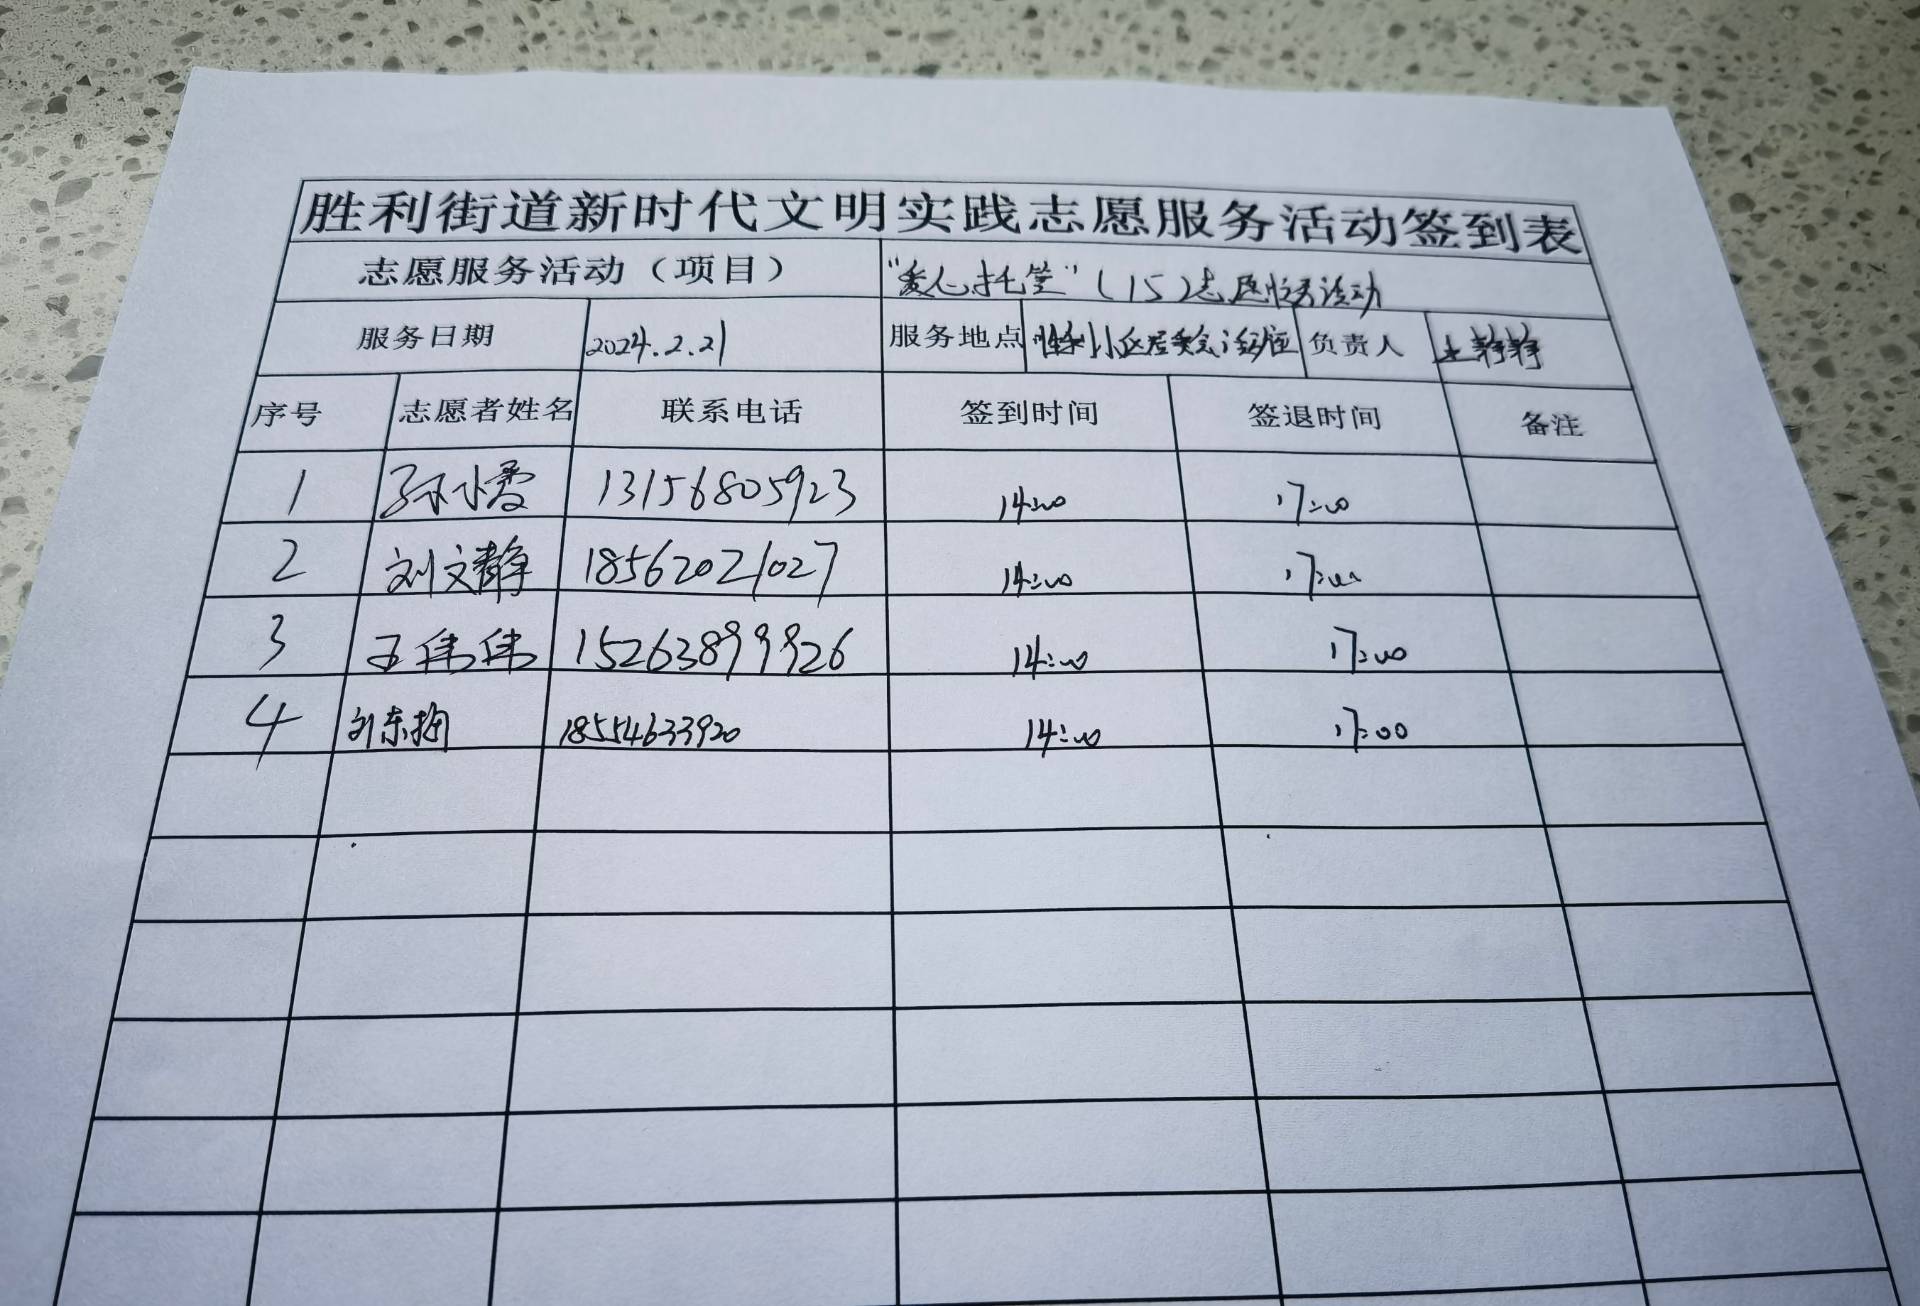 胜利街道新时代文明实践志愿服务活动签到表
志愿服务活动（项目） "爱心托管"（15）志愿服务活动
服务日期 2024.2.21 服务地点 胜利小区居委会活动室 负责人 静静
序号 志愿者姓名 联系电话 签到时间 签退时间 备注
1 孙小霞 13156805923 14:00 17:00
2 刘文静 18562021027 14:00 17:00
3 王伟伟 15263899926 14:00 17:00
4 刘东梅 18554633920 14:00 17:00